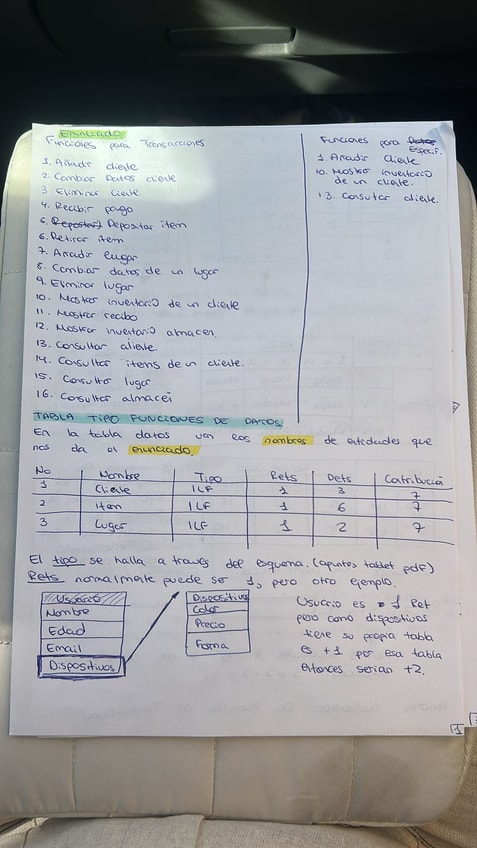 Enunciado
Funciones para Transacciones
1. Añadir cliente
2. Cambiar Datos cliente
3. Eliminar cliente
4. Recibir pago
5. Depositar item
6. Retirar item
7. Añadir lugar
8. Cambiar datos de un lugar
9. Eliminar lugar
10. Mostrar inventario de un cliente
11. Mostrar recibo
12. Mostrar inventario almacen.
13. Consultar cliente.
14. Consultar items de un cliente.
15. Consultar lugar
16. Consultar almacen
Funciones para
Especif.
1. Añadir cliente
10. Mostrar inventario
de un cliente.
13. Consultar cliente.
TABLA TIPO FUNCIONES DE DATOS
En la tabla datos van los nombres de entidades que
nos da el enunciado.
No Nombre Tipo Rets Dets Contribución
1 Cliente ILF 1 3 7
2 item ILF 1 6 7
3 Lugar ILF 1 2 7
El tipo se halla a través del esquema. (apuntes tablet pdf)
Rets normalmente puede ser 1, pero otro ejemplo.
Usuario
Nombre
Edad
Email
Dispositivos
Dispositivos
Color
Precio
Forma
Usuario es 1 Ret
pero como dispositivos
tiene su propia tabla
es +1 por esa tabla
Entonces serian +2.
1